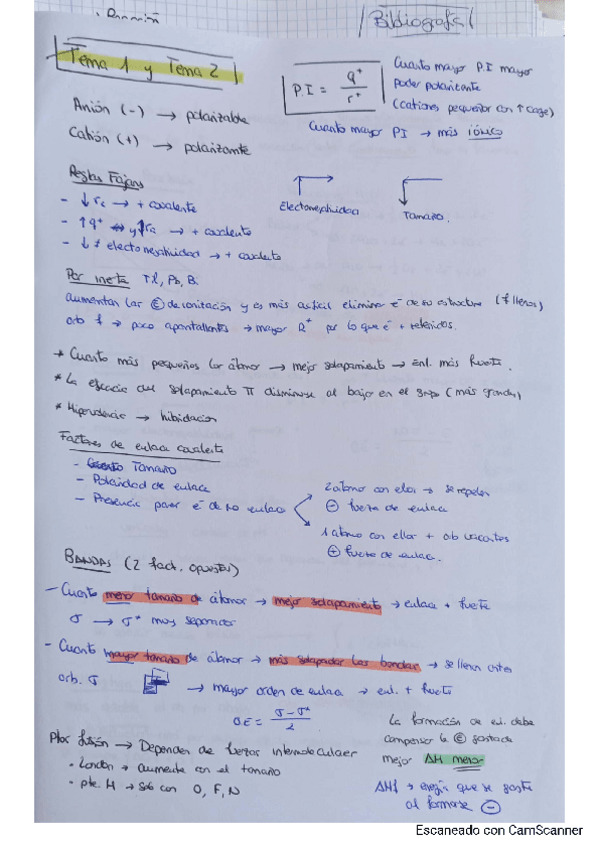 Bibliografía
Tema 1 y Tema 2
Anión (-) → polarizable
Catión (+) → polarizante
P.I = q+ / r+
Cuanto mayor P.I mayor
poder polarizante
(cationes pequeños con ↑ carga)
Cuanto mayor PI → más iónico
Reglas Fajans
- ↓ rc → + covalente
- ↑ q+ y ↑ra → + covalente
- ↓ ≠ electronegatividad → + covalente
Electronegatividad
Tamaño.
Par inerte Tl, Pb, Bi
aumentan las Ⓔ de ionización y es más difícil eliminar é de su estructura (f llenos)
orb f → poco apantallantes → mayor Q+ por lo que é + retenidos.
* Cuanto más pequeños los átomos → mejor solapamiento → Enl. más fuerte.
* La eficacia del solapamiento π disminuye al bajar en el grupo (más grandes)
* Hipervalencia → hibidación
Factores de enlace covalente
- Tamaño
- Polaridad de enlace
- Presencia pares é de no enlace
2 átomos con ellos → se repelen
⊖ fuerza de enlace
1 átomo con ellos + orb vacantes
⊕ fuerza de enlace.
BANDAS (2 fact. opuestos)
- Cuanto menor tamaño de átomos → mejor solapamiento → enlace + fuerte
σ → σ* muy separados
- Cuanto mayor tamaño de átomos → más solapadas las bandas → se llenan antes
orb. σ → mayor orden de enlace → enl. + fuerte
OE = σ-σ* / 2
Ptos fusión → Dependen de fuerzas intermoleculares
· London → aumenta con el tamaño
· pte. H → solo con O, F, N
La formación de enl. debe
compensar la Ⓔ gastada
mejor ΔH menor
ΔHf → energía que se gasta
al formarse ⊖
Escaneado con CamScanner